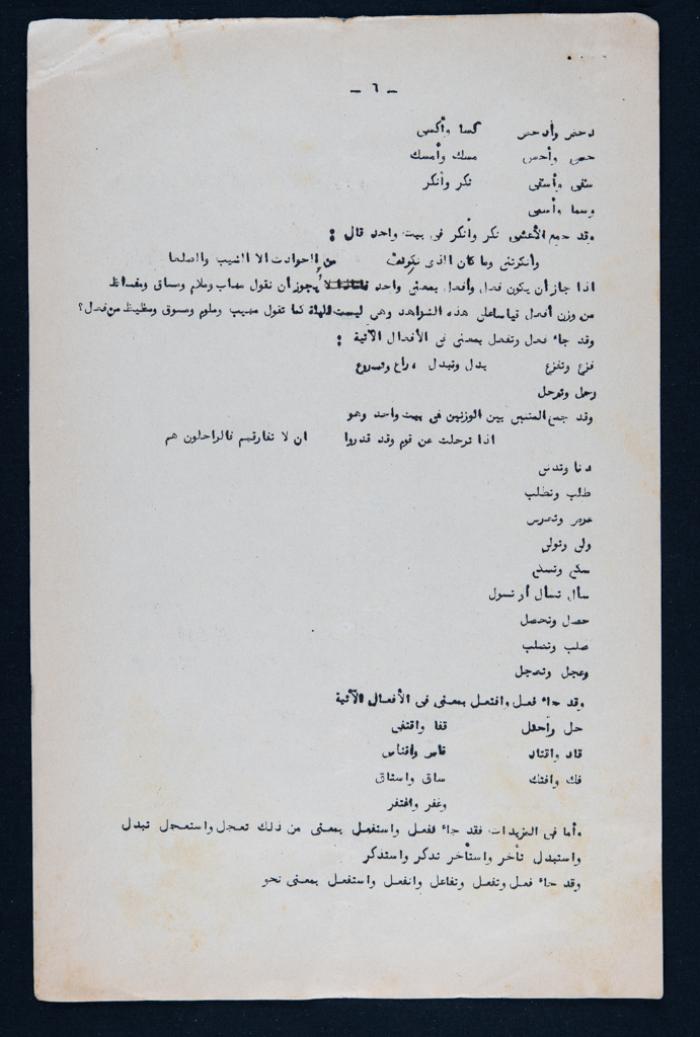 — ٦ —
دحض وأدحض كسا وأكسى
حس وأحس مسك وأمسك
سقى وأسقى نكر وأنكر
وسما وأسمى
وقد جمع الأعشى نكر وأنكر فى بيت واحد قال :
وأنكرتنى وما كان الذى نكرت من الحوادث الا الشيب والصلعا
اذا جاز أن يكون فعل وأفعل بمعنى واحد لا يجوز أن نقول مهاب وملام ومساق
من وزن أفعل قياسا على هذه الشواهد وهى ليست قليلة كما تقول مهيب وملوم ومسوق من فعل ؟
وقد جاء فعل وتفعل بمعنى فى الأفعال الآتية :
فزع وتفزع بدل وتبدل
رحل وترحل
وقد جمع المتنبى بين الوزنين فى بيت واحد وهو
اذا ترحلت عن قوم وقد قدروا ان لا تفارقهم فالراحلون هم
دنا وتدنى
طلب وتطلب
ولى وتولى
سأل تسأل أو تسول
حصل وتحصل
صلب وتصلب
وعجل وتعجل
وقد جاء فعل وافتعل بمعنى فى الأفعال الآتية
حل واحتل قفا واقتفى
قاد واقتاد قاس واقتاس
فك وافتك ساق واستاق
وغفر واغتفر
وأما فى المزيدات فقد جاء تفعل واستفعل بمعنى من ذلك تعجل واستعجل تبدل
واستبدل تأخر واستأخر تذكر واستذكر
وقد جاء فعل وتفعل وتفاعل وانفعل واستفعل بمعنى نحو